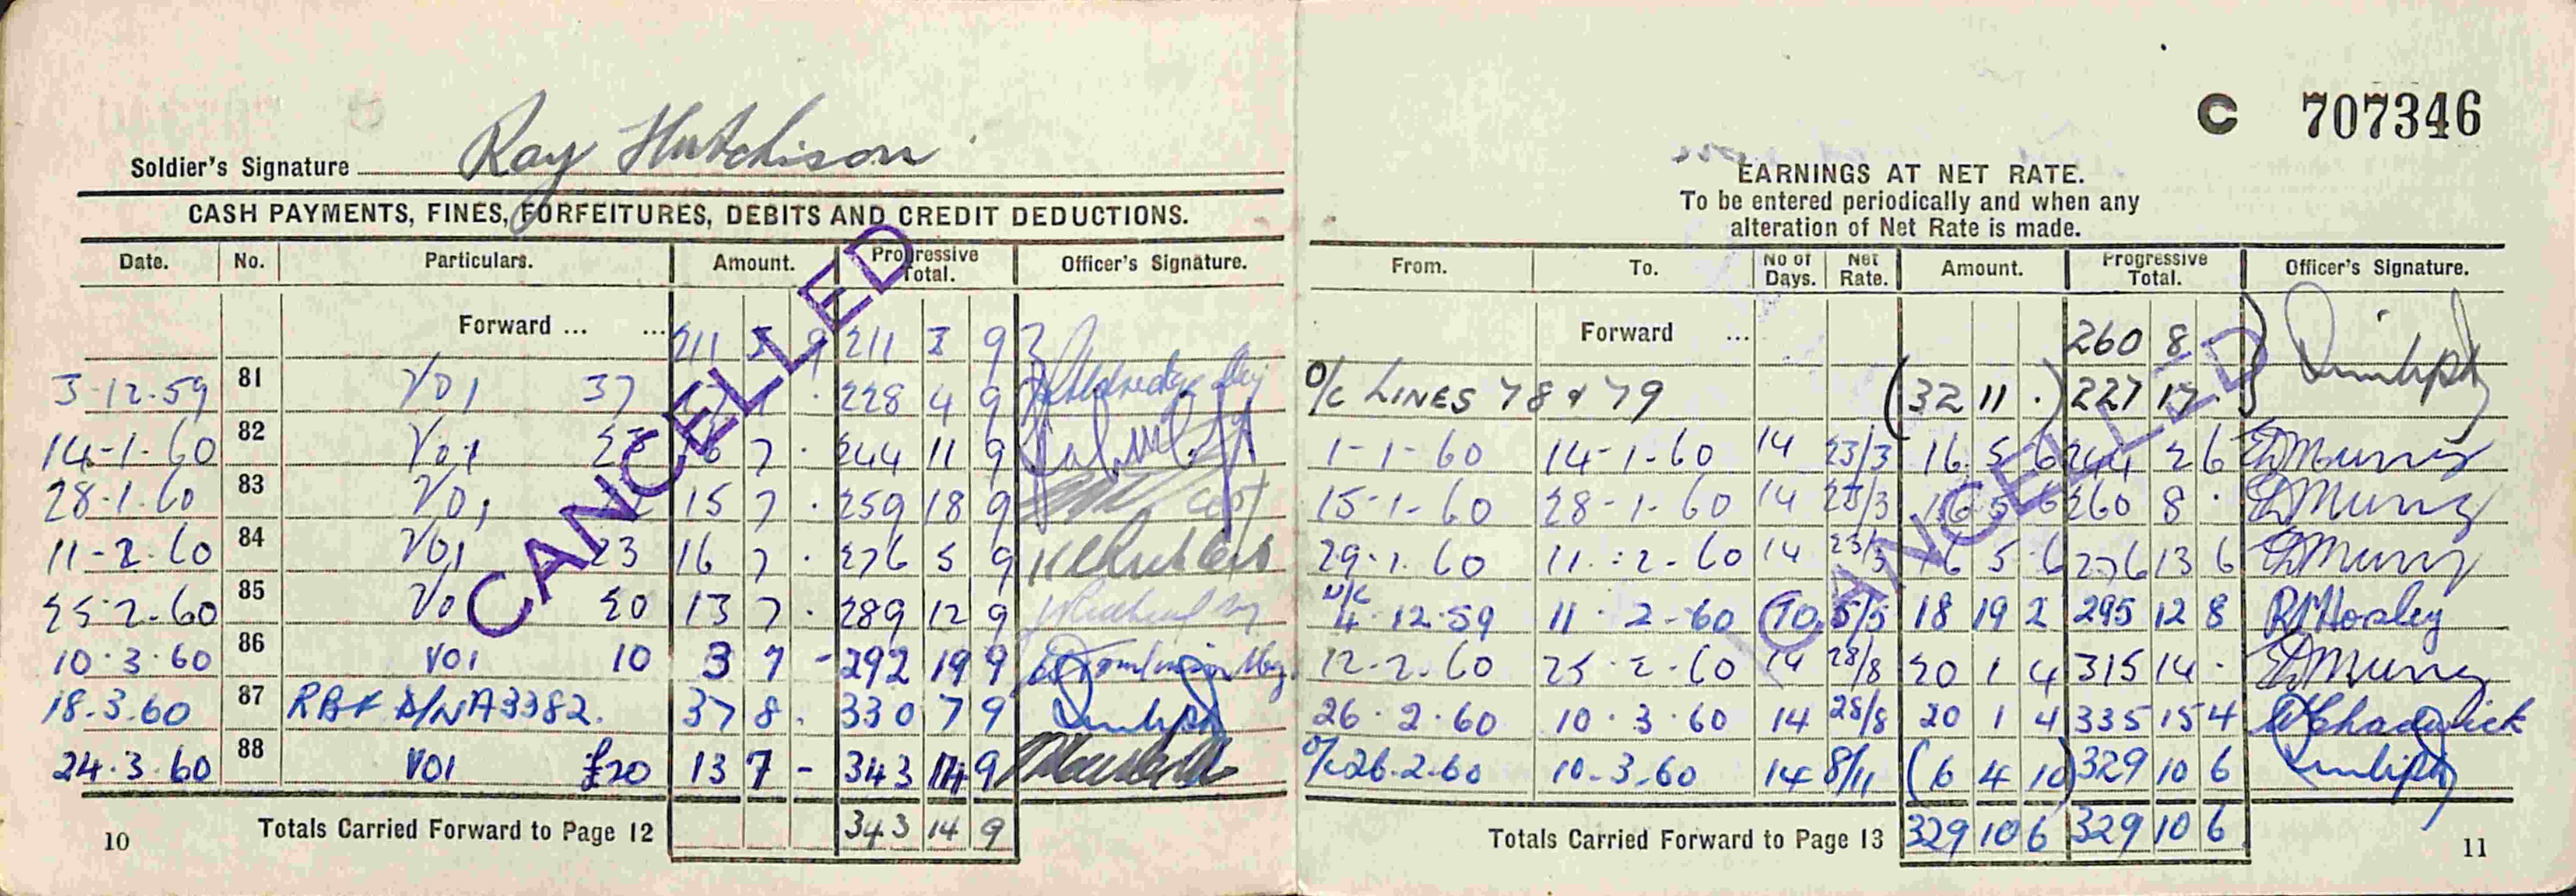 Soldier's Signature Ray Hutchison
CASH PAYMENTS, FINES, FORFEITURES, DEBITS AND CREDIT DEDUCTIONS.
Date. No. Particulars. Amount. Progressive Total. Officer's Signature.
Forward ... ... 211 3 9 211 3 9
3-12-59 81 V01 37 17 1 · 228 4 9
14-1-60 82 V01 16 7 · 244 11 9
28-1-60 83 V01 15 7 · 259 18 9
11-2-60 84 V01 23 16 7 · 276 5 9
25-2-60 85 V0 20 13 7 · 289 12 9
10·3·60 86 V01 10 3 7 - 292 19 9
18.3.60 87 D/N A3382. 37 8 · 330 7 9
24·3·60 88 V01 £20 13 7 - 343 14 9
Totals Carried Forward to Page 12 343 14 9
10
CANCELLED
C 707346
EARNINGS AT NET RATE.
To be entered periodically and when any
alteration of Net Rate is made.
From. To. No of Days. Net Rate. Amount. Progressive Total. Officer's Signature.
Forward ... 260 8
O/C LINES 78 & 79 (32 11 ·) 227 17 ·
1-1-60 14-1-60 14 23/3 16 5 6 244 2 6 Murray
15-1-60 28-1-60 14 23/3 16 5 6 260 8 · Murray
29·1·60 11·2-60 14 23/3 16 5 6 276 13 6 Murray
U/C 4·12·59 11·2-60 70 5/5 18 19 2 295 12 8 Horsley
12-2-60 25·2-60 14 28/8 20 1 4 315 14 · Murray
26·2·60 10·3·60 14 28/8 20 1 4 335 15 4 Chadwick
O/C 26-2-60 10-3-60 14 8/11 (6 4 10) 329 10 6
Totals Carried Forward to Page 13 329 10 6 329 10 6
11
CANCELLED